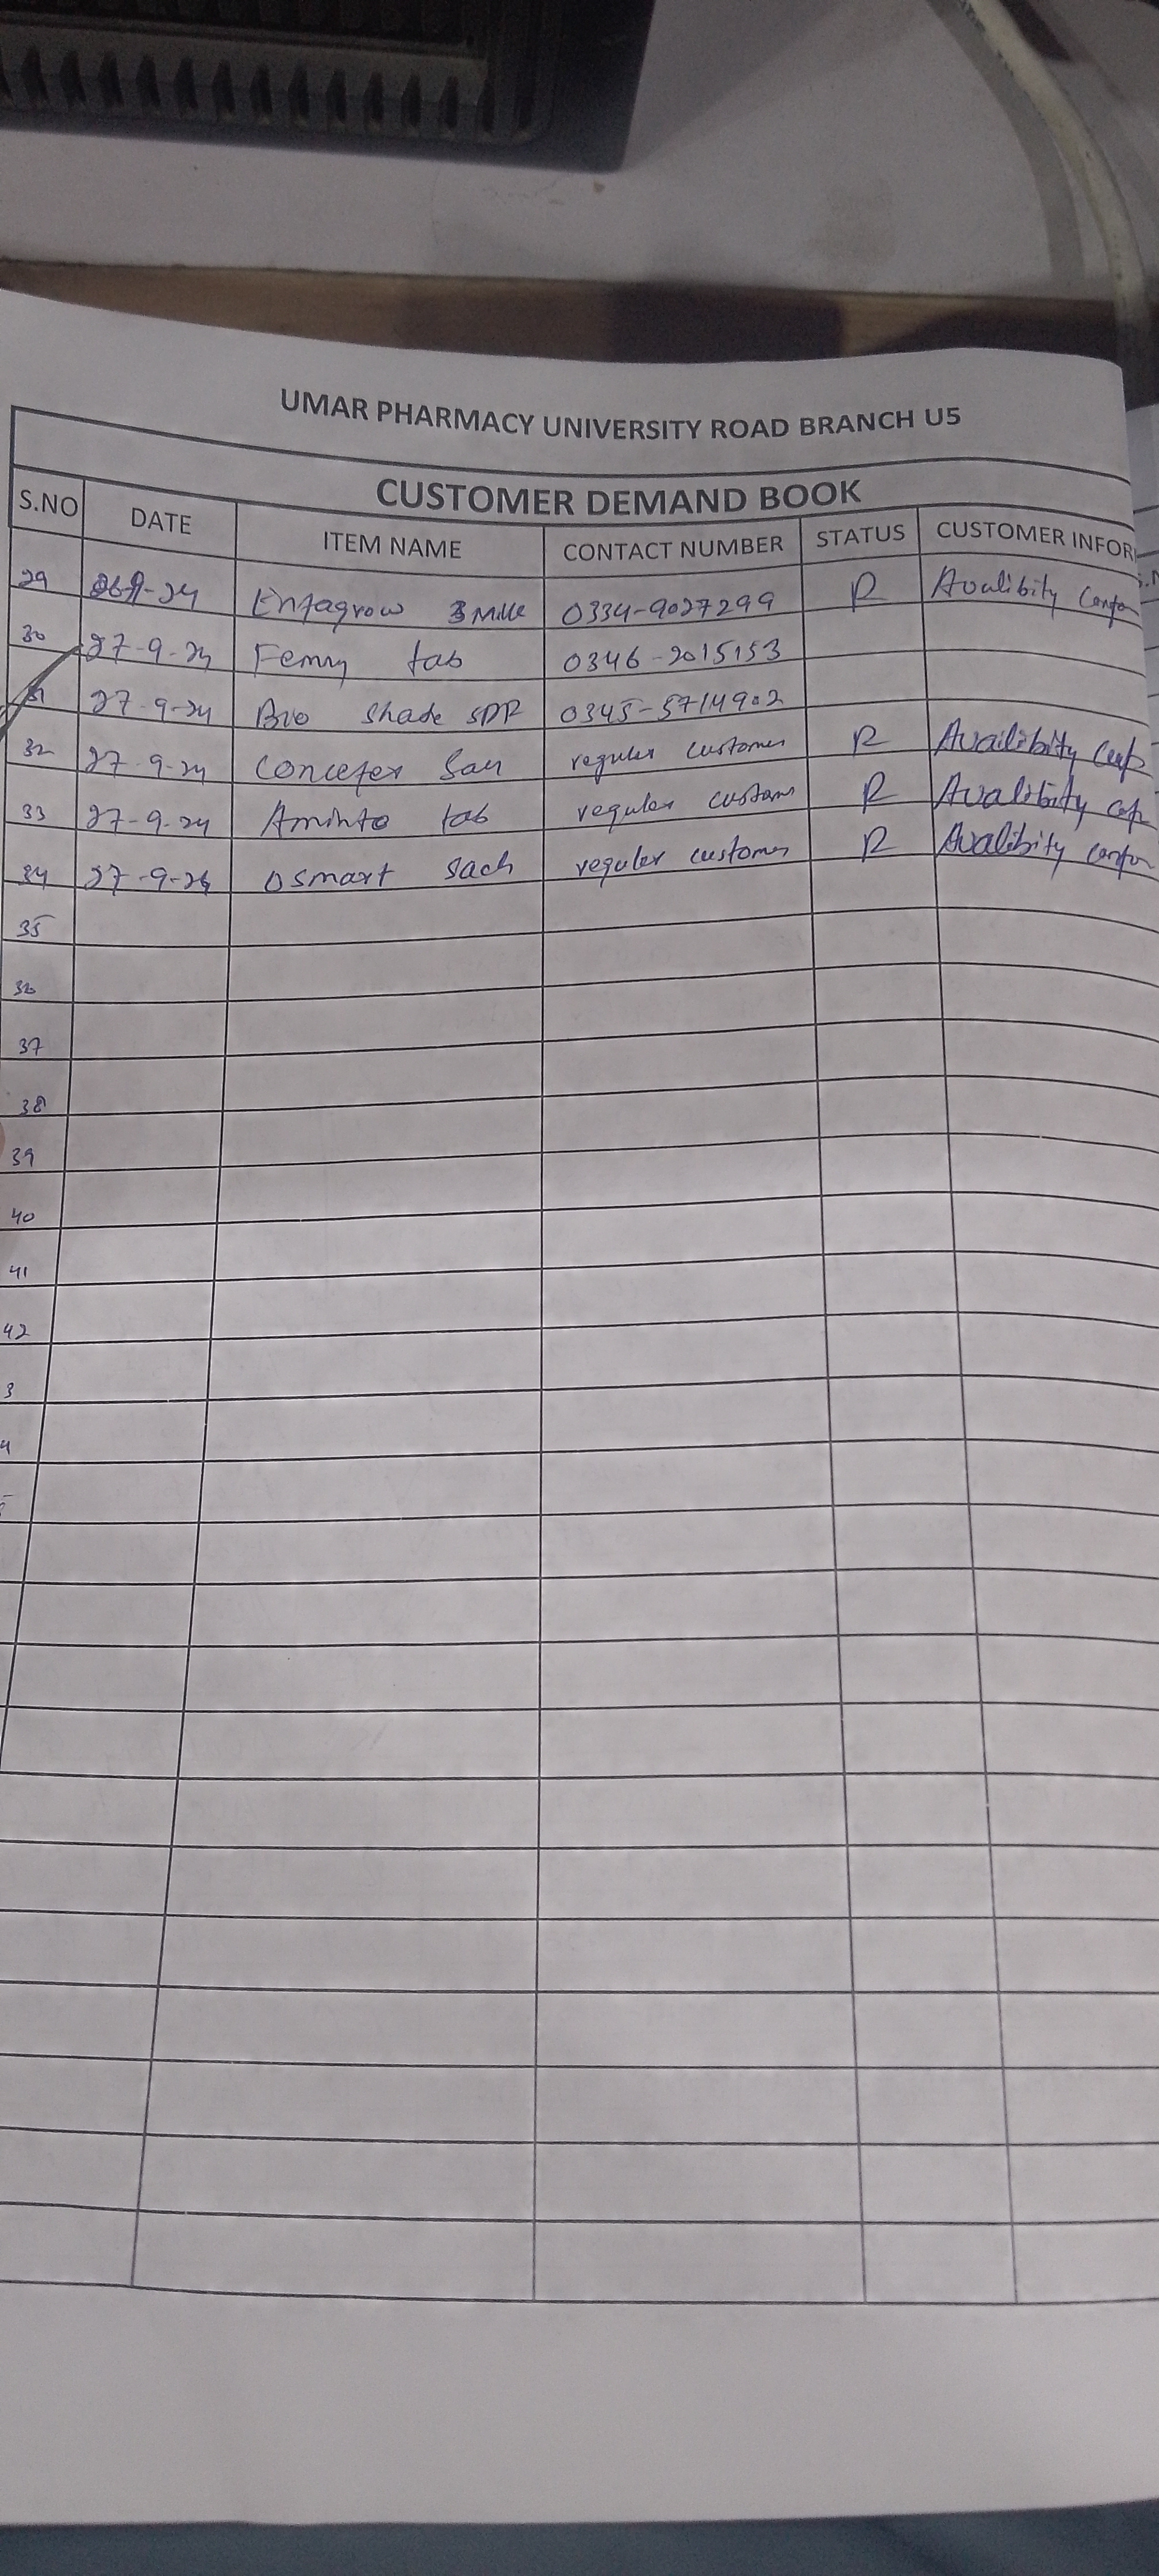 UMAR PHARMACY UNIVERSITY ROAD BRANCH U5
CUSTOMER DEMAND BOOK
S.NO DATE ITEM NAME CONTACT NUMBER STATUS CUSTOMER INFOR
29 26-9-24 Enfagrow 3 Milk 0334-9027299 R Avalibity
30 27-9-24 Femny tab 0346-2015153
31 27-9-24 Bio shade SPR 0345-5714902
32 27-9-24 regular customer R Availibity
33 27-9-24 Aminto tab regular custom R Avalibity
34 27-9-24 Osmart Sach regular customer R Avalibity
35
36
37
38
39
40
41
42
3
4